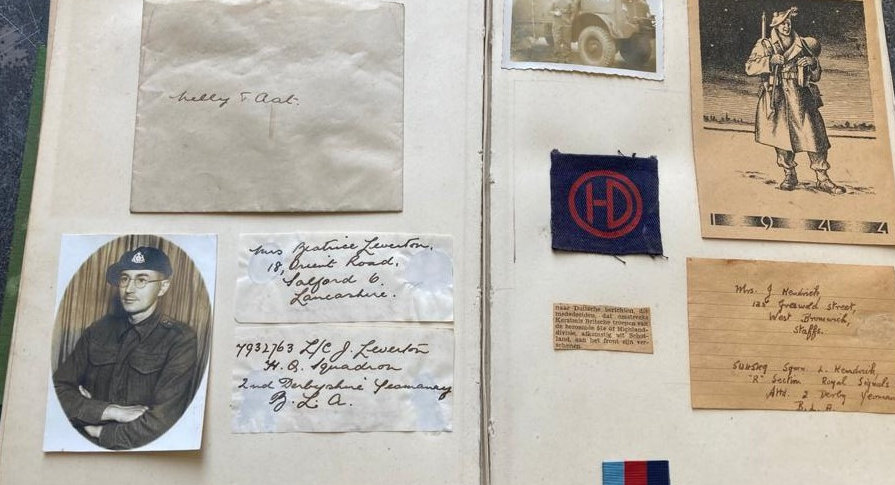 Nelly & Aat.
Mrs Beatrice Leverton,
18, Orient Road,
Salford 6.
Lancashire.
7932763 L/C J. Leverton
H.Q. Squadron
2nd Derbyshire Yeomanry
B. L. A.
HD
1944
naar Duitsche berichten, die
mededeelden, dat omstreeks
Kerstmis Britsche troepen van
de beroemde 51e of Highland-
divisie, afkomstig uit Schot-
land, aan het front zijn ver-
schenen.
Mrs. J Kendrick,
Street,
West Bromwich,
Staffs.
Sgmn. L. Kendrick
"R" Section Royal Signals
Attd. 2 Derby Yeoman
B. L. A.